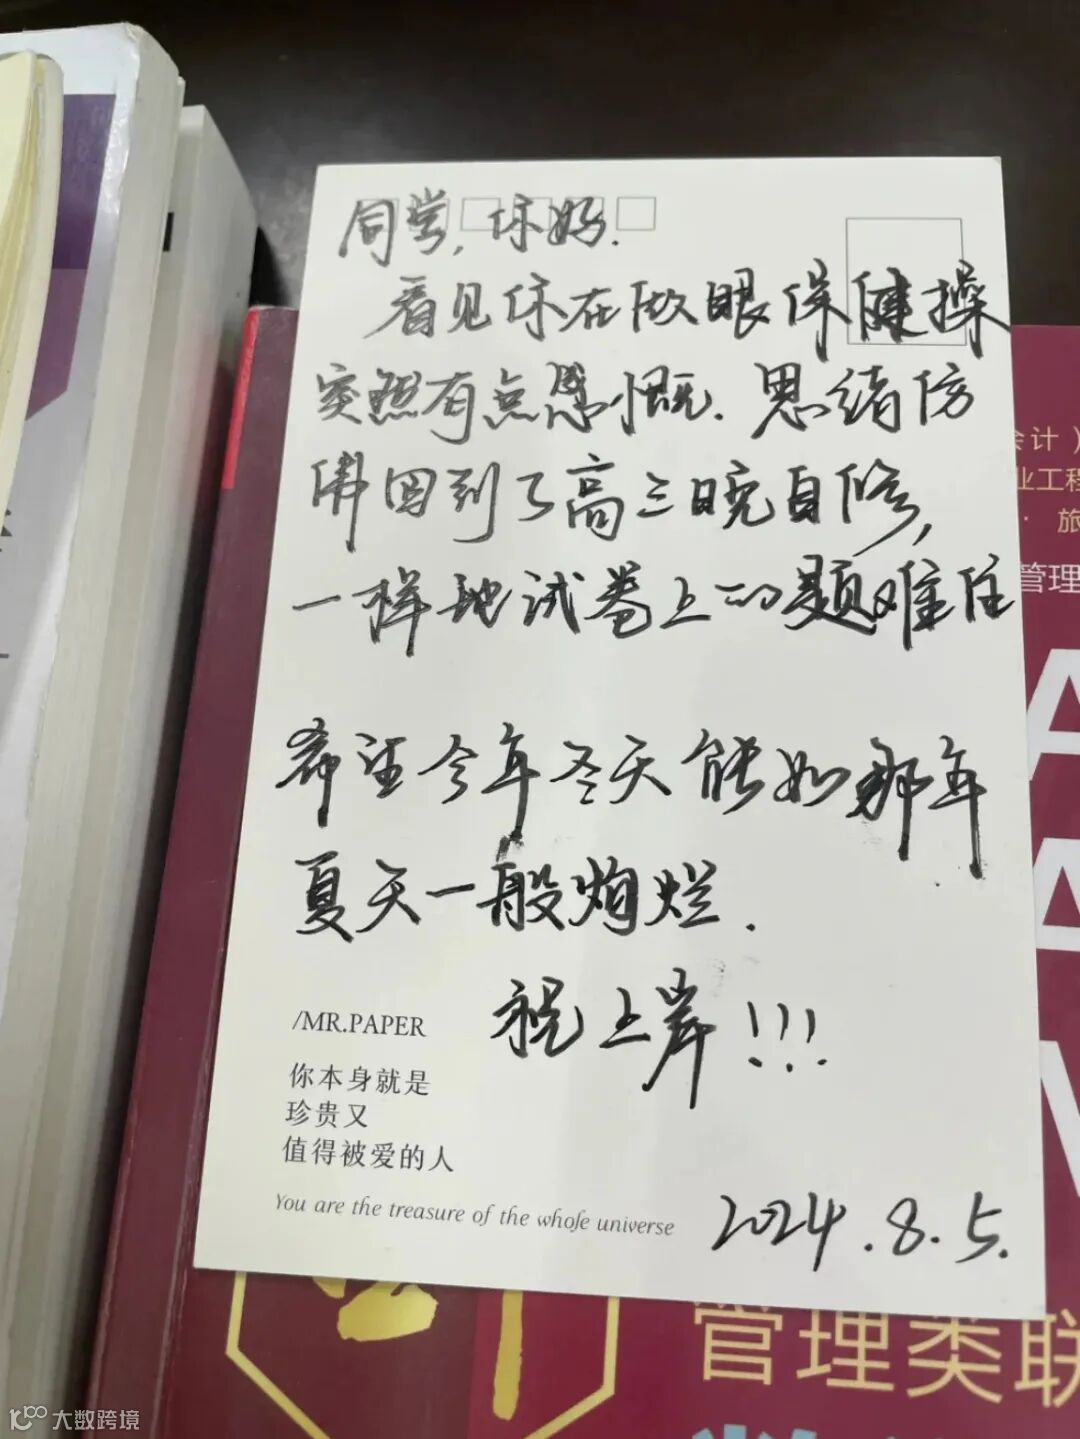 同学,你好.
看见你在做眼保健操
突然有点感慨.思绪仿
佛回到了高三晚自修,
一样地试卷上的题难住
希望今年冬天能如那年
夏天一般炯烂.
祝上岸!!!
/MR.PAPER
你本身就是
珍贵又
值得被爱的人
You are the treasure of the whole universe
2024.8.5.
会计)
业工程
·旅
管理
A
A
管理类联
大数跨境